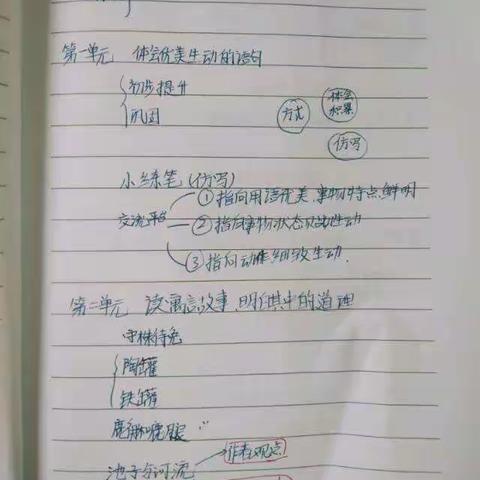 第一单元 体会优美生动的语句
初步提升
巩固
方式
体会
积累
仿写
小练笔(仿写)
交流平台
①指向用语优美、事物特点鲜明
②指向事物状态及其生动
③指向动作细致生动.
第二单元 读寓言故事,明白其中的道理
守株待兔
陶罐
铁罐
鹿角和鹿腿
池子与河流
作者观点